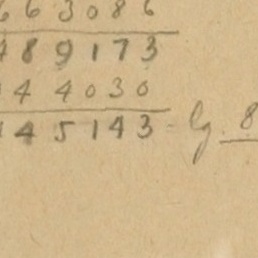 663086
489173
44030
145143 = lg 8